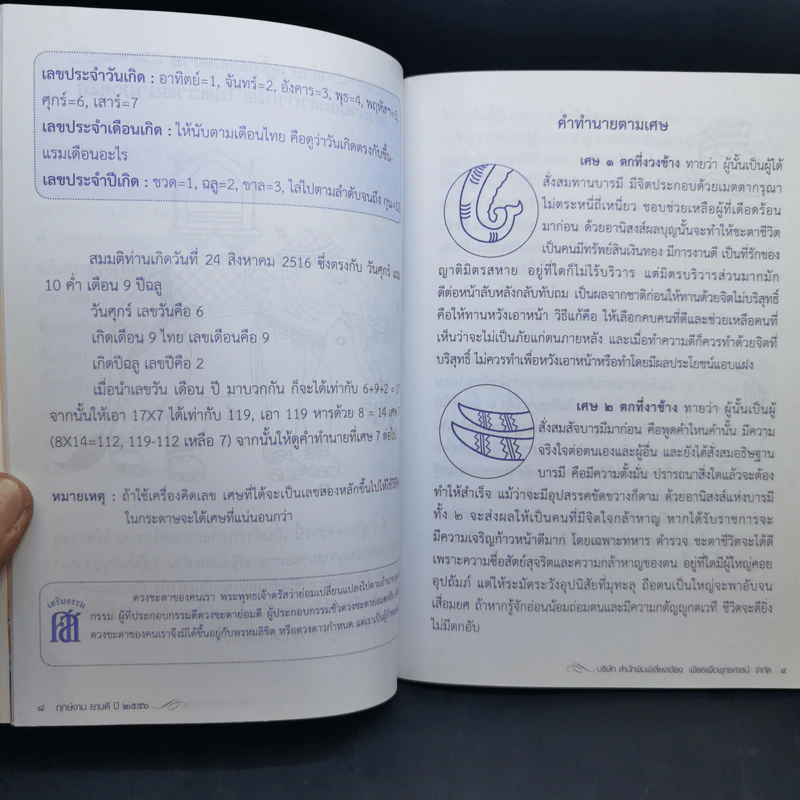 เลขประจำวันเกิด : อาทิตย์=1, จันทร์=2, อังคาร=3, พุธ=4, พฤหัสฯ=5,
ศุกร์=6, เสาร์=7
เลขประจำเดือนเกิด : ให้นับตามเดือนไทย คือดูว่าวันเกิดตรงกับขึ้น-
แรมเดือนอะไร
เลขประจำปีเกิด : ชวด=1, ฉลู=2, ขาล=3, ไล่ไปตามลำดับจนถึง กุน=12
สมมติท่านเกิดวันที่ 24 สิงหาคม 2516 ซึ่งตรงกับ วันศุกร์ แรม
10 ค่ำ เดือน 9 ปีฉลู
วันศุกร์ เลขวันคือ 6
เกิดเดือน 9 ไทย เลขเดือนคือ 9
เกิดปีฉลู เลขปีคือ 2
เมื่อนำเลขวัน เดือน ปี มาบวกกัน ก็จะได้เท่ากับ 6+9+2 =
จากนั้นให้เอา 17X7 ได้เท่ากับ 119, เอา 119 หารด้วย 8 = 14 เศษ 7
(8X14=112, 119-112 เหลือ 7) จากนั้นให้ดูคำทำนายที่เศษ 7 ต่อไป
หมายเหตุ : ถ้าใช้เครื่องคิดเลข เศษที่ได้จะเป็นเลขสองหลักขึ้นไปให้ใช้วิธี
ในกระดาษจะได้เศษที่แน่นอนกว่า
เสริมธรรม
ดวงชะตาของคนเรา พระพุทธเจ้าตรัสว่าย่อมเปลี่ยนแปลงไปตามอำนาจ
กรรม ผู้ที่ประกอบกรรมดีดวงชะตาย่อมดี ผู้ประกอบกรรมชั่วดวงชะตาย่อมตกอับ
ดวงชะตาของคนเราจึงมิได้ขึ้นอยู่กับพรหมลิขิต หรือดวงดาวกำหนด แต่เราเป็นผู้กำหนด
๘ ฤกษ์งาม ยามดี ปี ๒๕๕๖
คำทำนายตามเศษ
เศษ ๑ ตกที่งวงช้าง ทายว่า ผู้นั้นเป็นผู้ได้
สั่งสมทานบารมี มีจิตประกอบด้วยเมตตากรุณา
ไม่ตระหนี่ถี่เหนียว ชอบช่วยเหลือผู้ที่เดือดร้อน
มาก่อน ด้วยอานิสงส์ผลบุญนั้นจะทำให้ชะตาชีวิต
เป็นคนมีทรัพย์สินเงินทอง มีการงานดี เป็นที่รักของ
ญาติมิตรสหาย อยู่ที่ใดก็ไม่ไร้บริวาร แต่มิตรบริวารส่วนมากมัก
ดีต่อหน้าลับหลังกลับทับถม เป็นผลจากชาติก่อนให้ทานด้วยจิตไม่บริสุทธิ์
คือให้ทานหวังเอาหน้า วิธีแก้คือ ให้เลือกคบคนที่ดีและช่วยเหลือคนที่
เห็นว่าจะไม่เป็นภัยแก่ตนภายหลัง และเมื่อทำความดีก็ควรทำด้วยจิตที่
บริสุทธิ์ ไม่ควรทำเพื่อหวังเอาหน้าหรือทำโดยมีผลประโยชน์แอบแฝง
เศษ ๒ ตกที่งาช้าง ทายว่า ผู้นั้นเป็นผู้
สั่งสมสัจบารมีมาก่อน คือพูดคำไหนคำนั้น มีความ
จริงใจต่อตนเองและผู้อื่น และยังได้สั่งสมอธิษฐาน
บารมี คือมีความตั้งมั่น ปรารถนาสิ่งใดแล้วจะต้อง
ทำให้สำเร็จ แม้ว่าจะมีอุปสรรคขัดขวางก็ตาม ด้วยอานิสงส์แห่งบารมี
ทั้ง ๒ จะส่งผลให้เป็นคนที่มีจิตใจกล้าหาญ หากได้รับราชการจะ
มีความเจริญก้าวหน้าดีมาก โดยเฉพาะทหาร ตำรวจ ชะตาชีวิตจะได้ดี
เพราะความซื่อสัตย์สุจริตและความกล้าหาญของตน อยู่ที่ใดมีผู้ใหญ่คอย
อุปถัมภ์ แต่ให้ระมัดระวังอุปนิสัยที่มุทะลุ ถือตนเป็นใหญ่จะพาอับจน
เสื่อมยศ ถ้าหากรู้จักอ่อนน้อมถ่อมตนและมีความกตัญญูกตเวที ชีวิตจะดียิ่ง
ไม่มีตกอับ
บริษัท สำนักพิมพ์เลี่ยงเชียง เพียรเพื่อพุทธศาสน์ จำกัด ๙